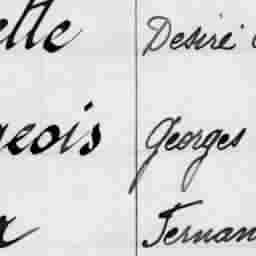 elle Desiré
geois Georges
Fernan